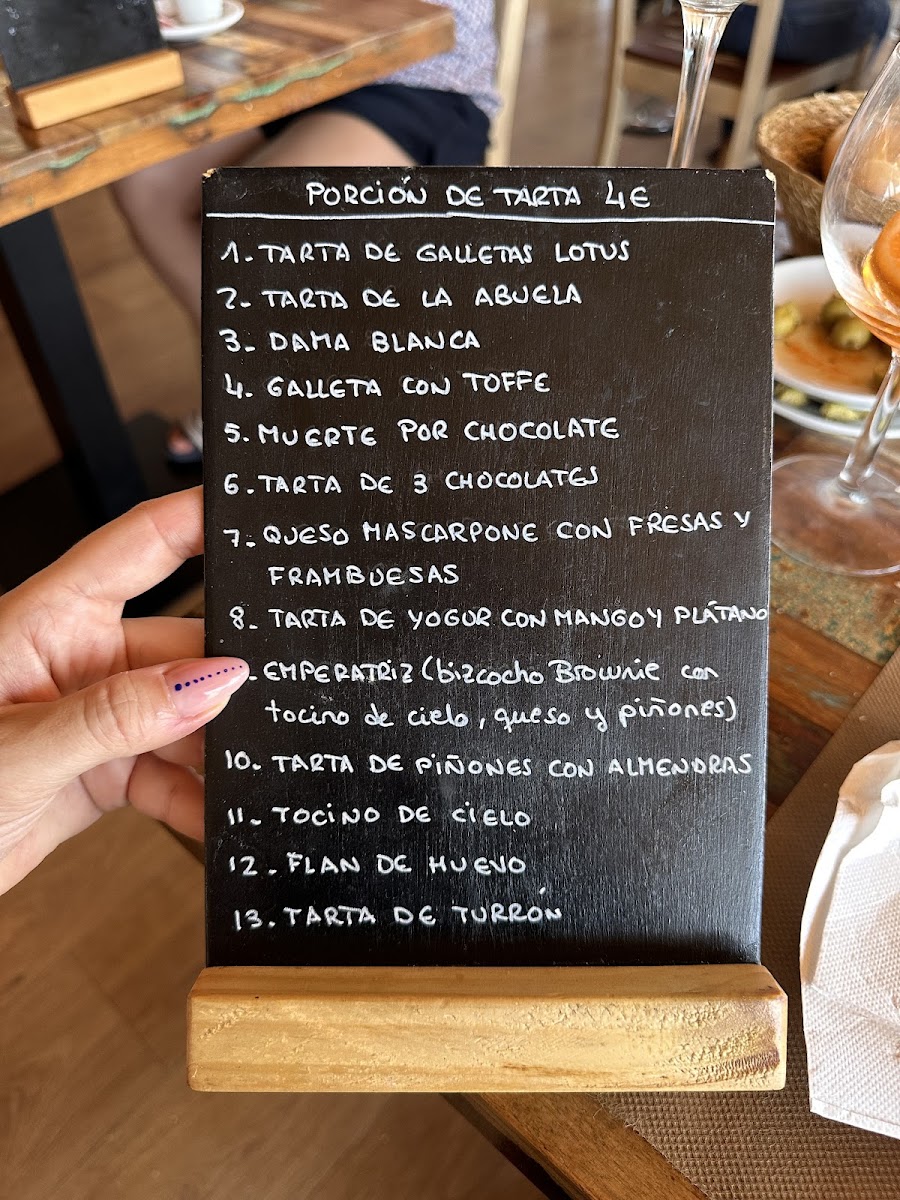 PORCIÓN DE TARTA 4€
1. TARTA DE GALLETAS LOTUS
2- TARTA DE LA ABUELA
3- DAMA BLANCA
4. GALLETA CON TOFFE
5. MUERTE POR CHOCOLATE
6. TARTA DE 3 CHOCOLATES
7- QUESO MASCARPONE CON FRESAS Y
FRAMBUESAS
8- TARTA DE YOGUR CON MANGO Y PLÁTANO
. EMPERATRIZ (bizcocho Brownie con
tocino de cielo, queso y piñones)
10. TARTA DE PIÑONES CON ALMENDRAS
11- TOCINO DE CIELO
12. FLAN DE HUEVO
13. TARTA DE TURRÓN